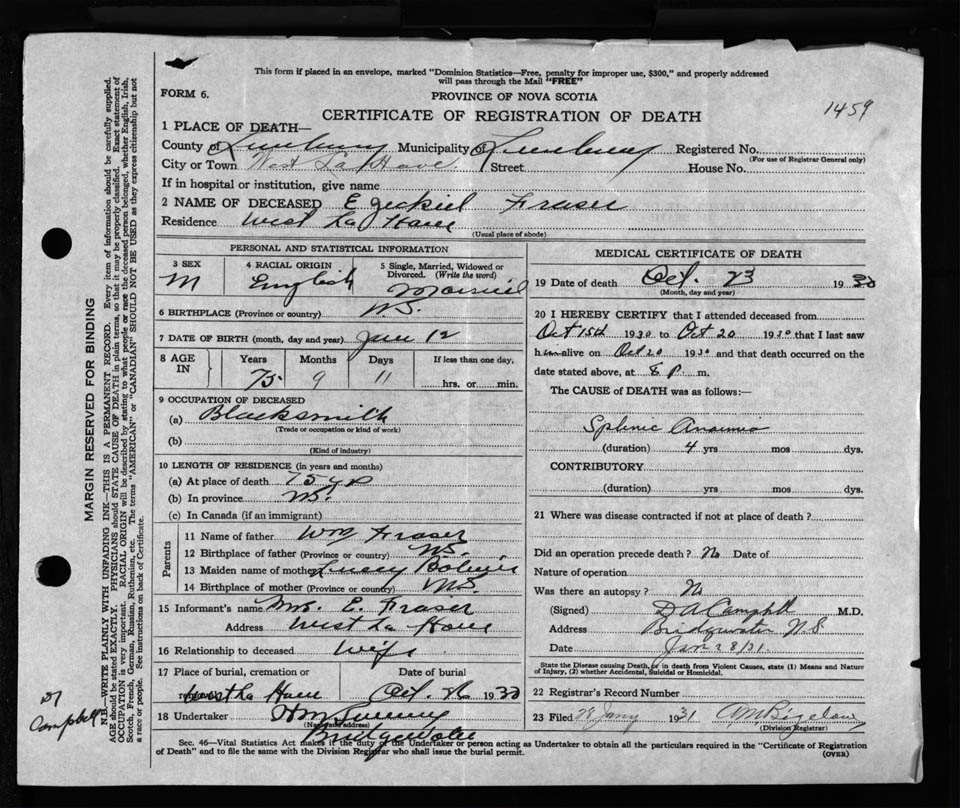 This form if placed in an envelope, marked "Dominion Statistics—Free, penalty for improper use, $300," and properly addressed
will pass through the Mail "FREE"
FORM 6.
PROVINCE OF NOVA SCOTIA
1459
CERTIFICATE OF REGISTRATION OF DEATH
1 PLACE OF DEATH—
County of Lunenburg Municipality of Lunenburg Registered No.
(For use of Registrar General only)
City or Town West La Have Street House No.
If in hospital or institution, give name
2 NAME OF DECEASED Ezekiel Fraser
Residence West La Have
(Usual place of abode)
PERSONAL AND STATISTICAL INFORMATION
3 SEX 4 RACIAL ORIGIN 5 Single, Married, Widowed or
Divorced. (Write the word)
M English Married
6 BIRTHPLACE (Province or country) NS.
7 DATE OF BIRTH (month, day and year) 12
8 AGE IN Years Months Days If less than one day,
75 9 11 hrs. or min.
9 OCCUPATION OF DECEASED
(a) Blacksmith
(Trade or occupation or kind of work)
(b)
(Kind of industry)
10 LENGTH OF RESIDENCE (in years and months)
(a) At place of death 75 yrs
(b) In province NS.
(c) In Canada (if an immigrant)
Parents
11 Name of father Wm Fraser
12 Birthplace of father (Province or country) NS.
13 Maiden name of mother
14 Birthplace of mother (Province or country) NS.
15 Informant's name Mrs. E. Fraser
Address West La Have
16 Relationship to deceased Wife
17 Place of burial, cremation or Date of burial
West La Have Oct. 26 1930
18 Undertaker
(Name and address)
Bridgewater
MEDICAL CERTIFICATE OF DEATH
19 Date of death Oct. 23 1930
(Month, day and year)
20 I HEREBY CERTIFY that I attended deceased from
Oct 15th 1930 to Oct 20 1930 that I last saw
him alive on Oct 20 1930 and that death occurred on the
date stated above, at 8 P. m.
The CAUSE OF DEATH was as follows:—
Splenic Anaemia
(duration) 4 yrs mos dys.
CONTRIBUTORY
(duration) yrs mos dys.
21 Where was disease contracted if not at place of death?
Did an operation precede death? No Date of
Nature of operation
Was there an autopsy? No
(Signed) D A Campbell M.D.
Address Bridgewater N.S
Date Jan 28/31
State the Disease causing Death, or in death from Violent Causes, state (1) Means and Nature
of Injury, (2) whether Accidental, Suicidal or Homicidal.
22 Registrar's Record Number
23 Filed 28 Jany 1931
(Division Registrar)
Sec. 46—Vital Statistics Act makes it the duty of the Undertaker or person acting as Undertaker to obtain all the particulars required in the "Certificate of Registration
of Death" and to file the same with the Division Registrar who shall issue the burial permit.
(OVER)
MARGIN RESERVED FOR BINDING
N.B.—WRITE PLAINLY WITH UNFADING INK—THIS IS A PERMANENT RECORD. Every item of information should be carefully supplied.
AGE should be stated EXACTLY. PHYSICIANS should STATE CAUSE OF DEATH in plain terms, so that it may be properly classified. Exact statement of
OCCUPATION is very important. RACIAL ORIGIN will be described by stating to what people or race the deceased person belonged, whether English, Irish,
Scotch, French, German, Russian, Ruthenian, etc. The terms "AMERICAN" or "CANADIAN" SHOULD NOT BE USED as they express citizenship but not
a race or people. See instructions on back of Certificate.
Campbell